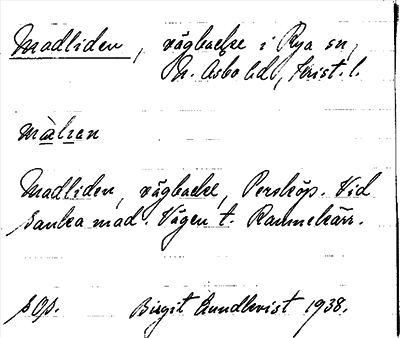 Madliden, vägbacke i Rya sn,
N. Åsbo hd, Krist. l.
màlıɛn
Madliden, vägbacke, Perstorp. Vid
sanka mad. Vägen t. Rammekärr.
s Op. Birgit Lundkvist 1938.